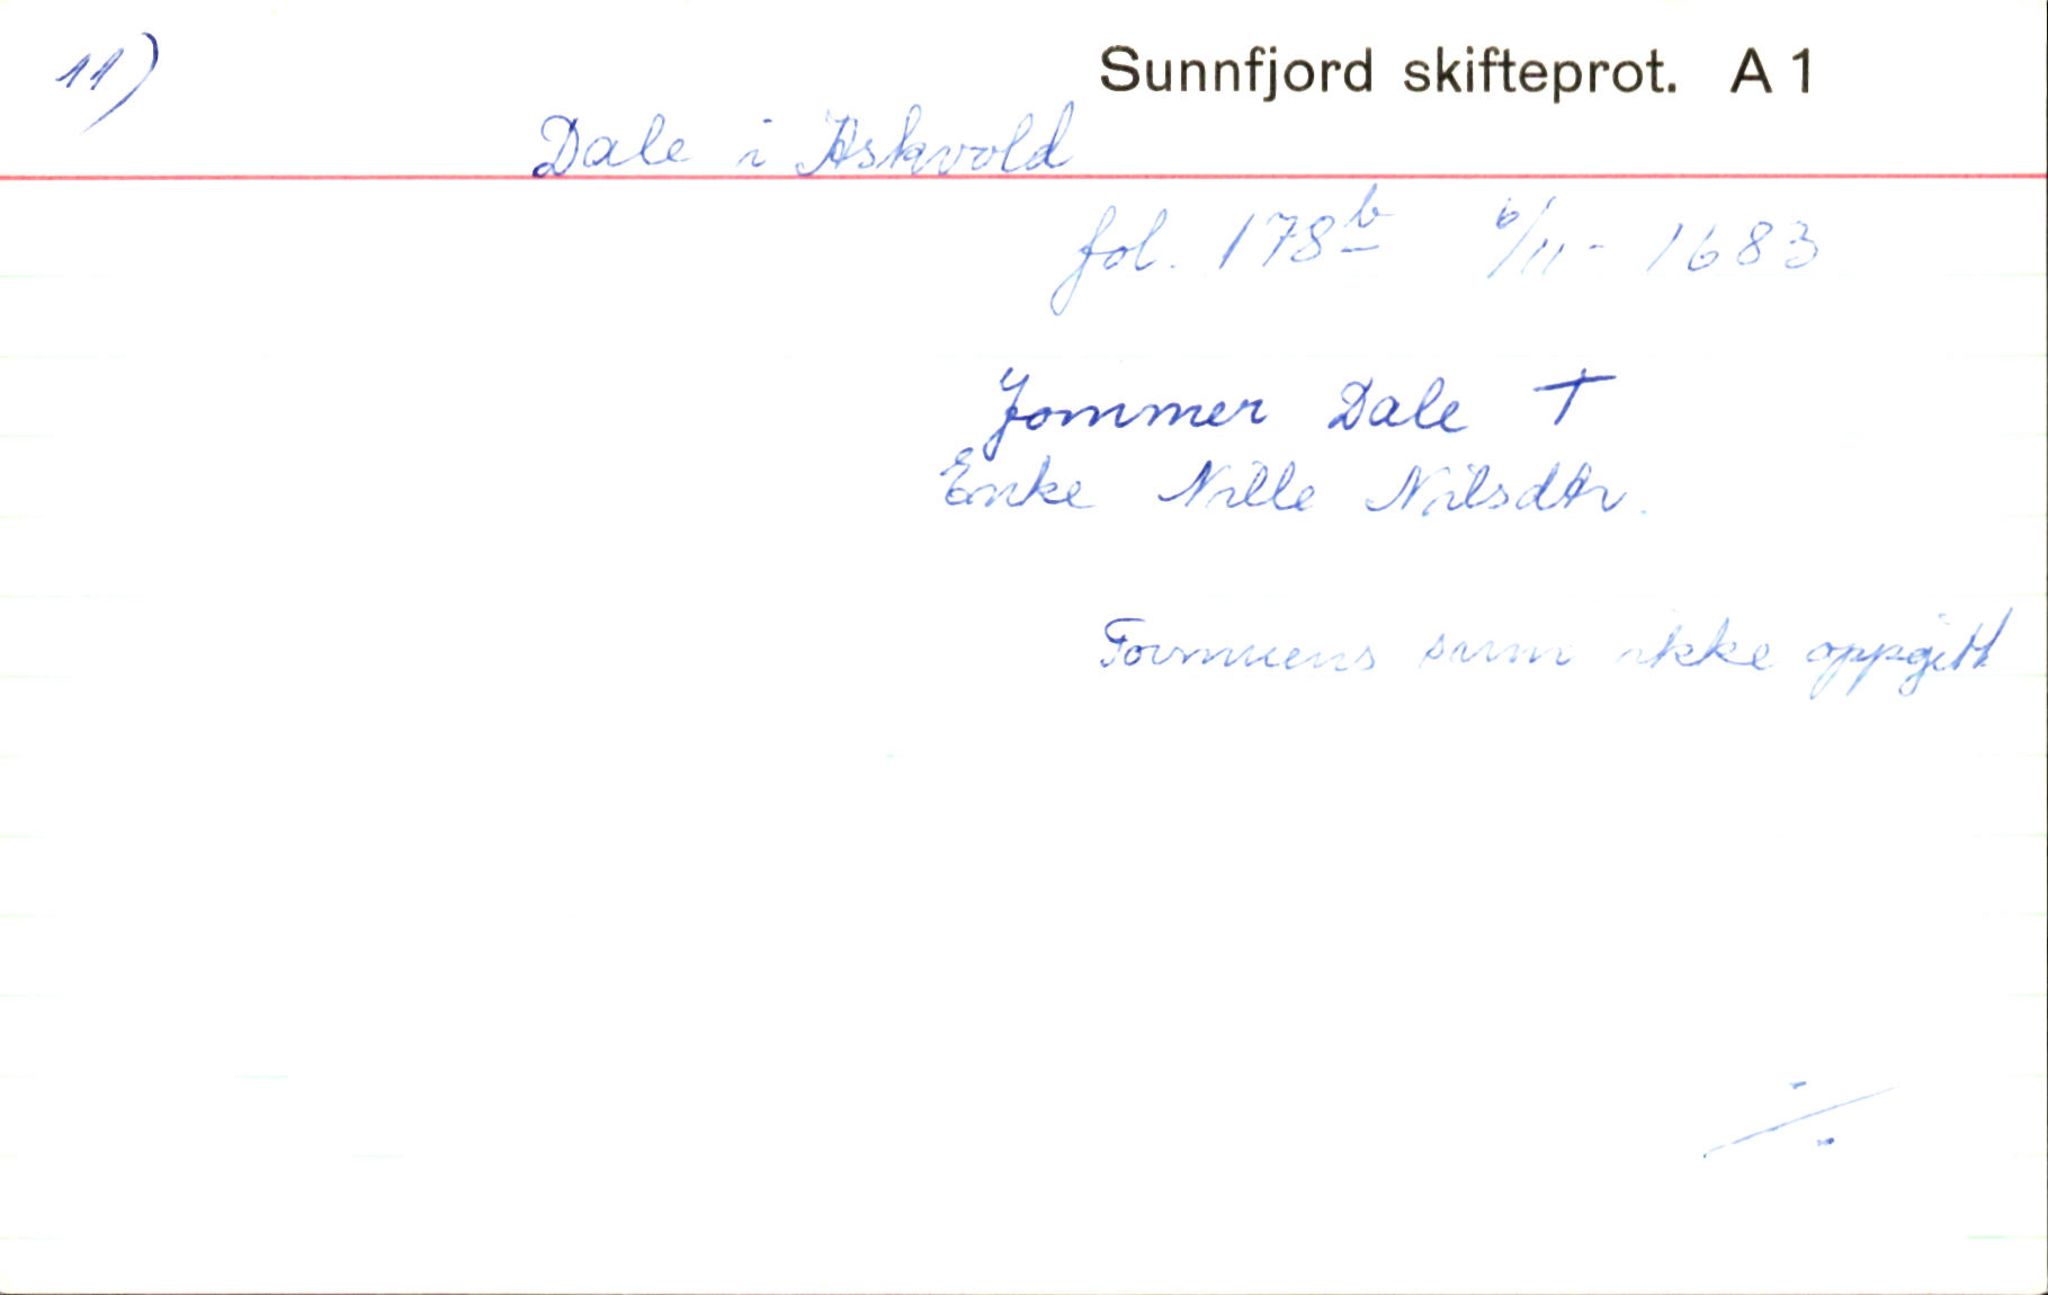 11)
Sunnfjord skifteprot. A 1
Dale i Askvold
fol. 178b 6/11 - 1683
Jommer Dale †
Enke Nille Nilsdtr.
Formuens sum ikke oppgitt